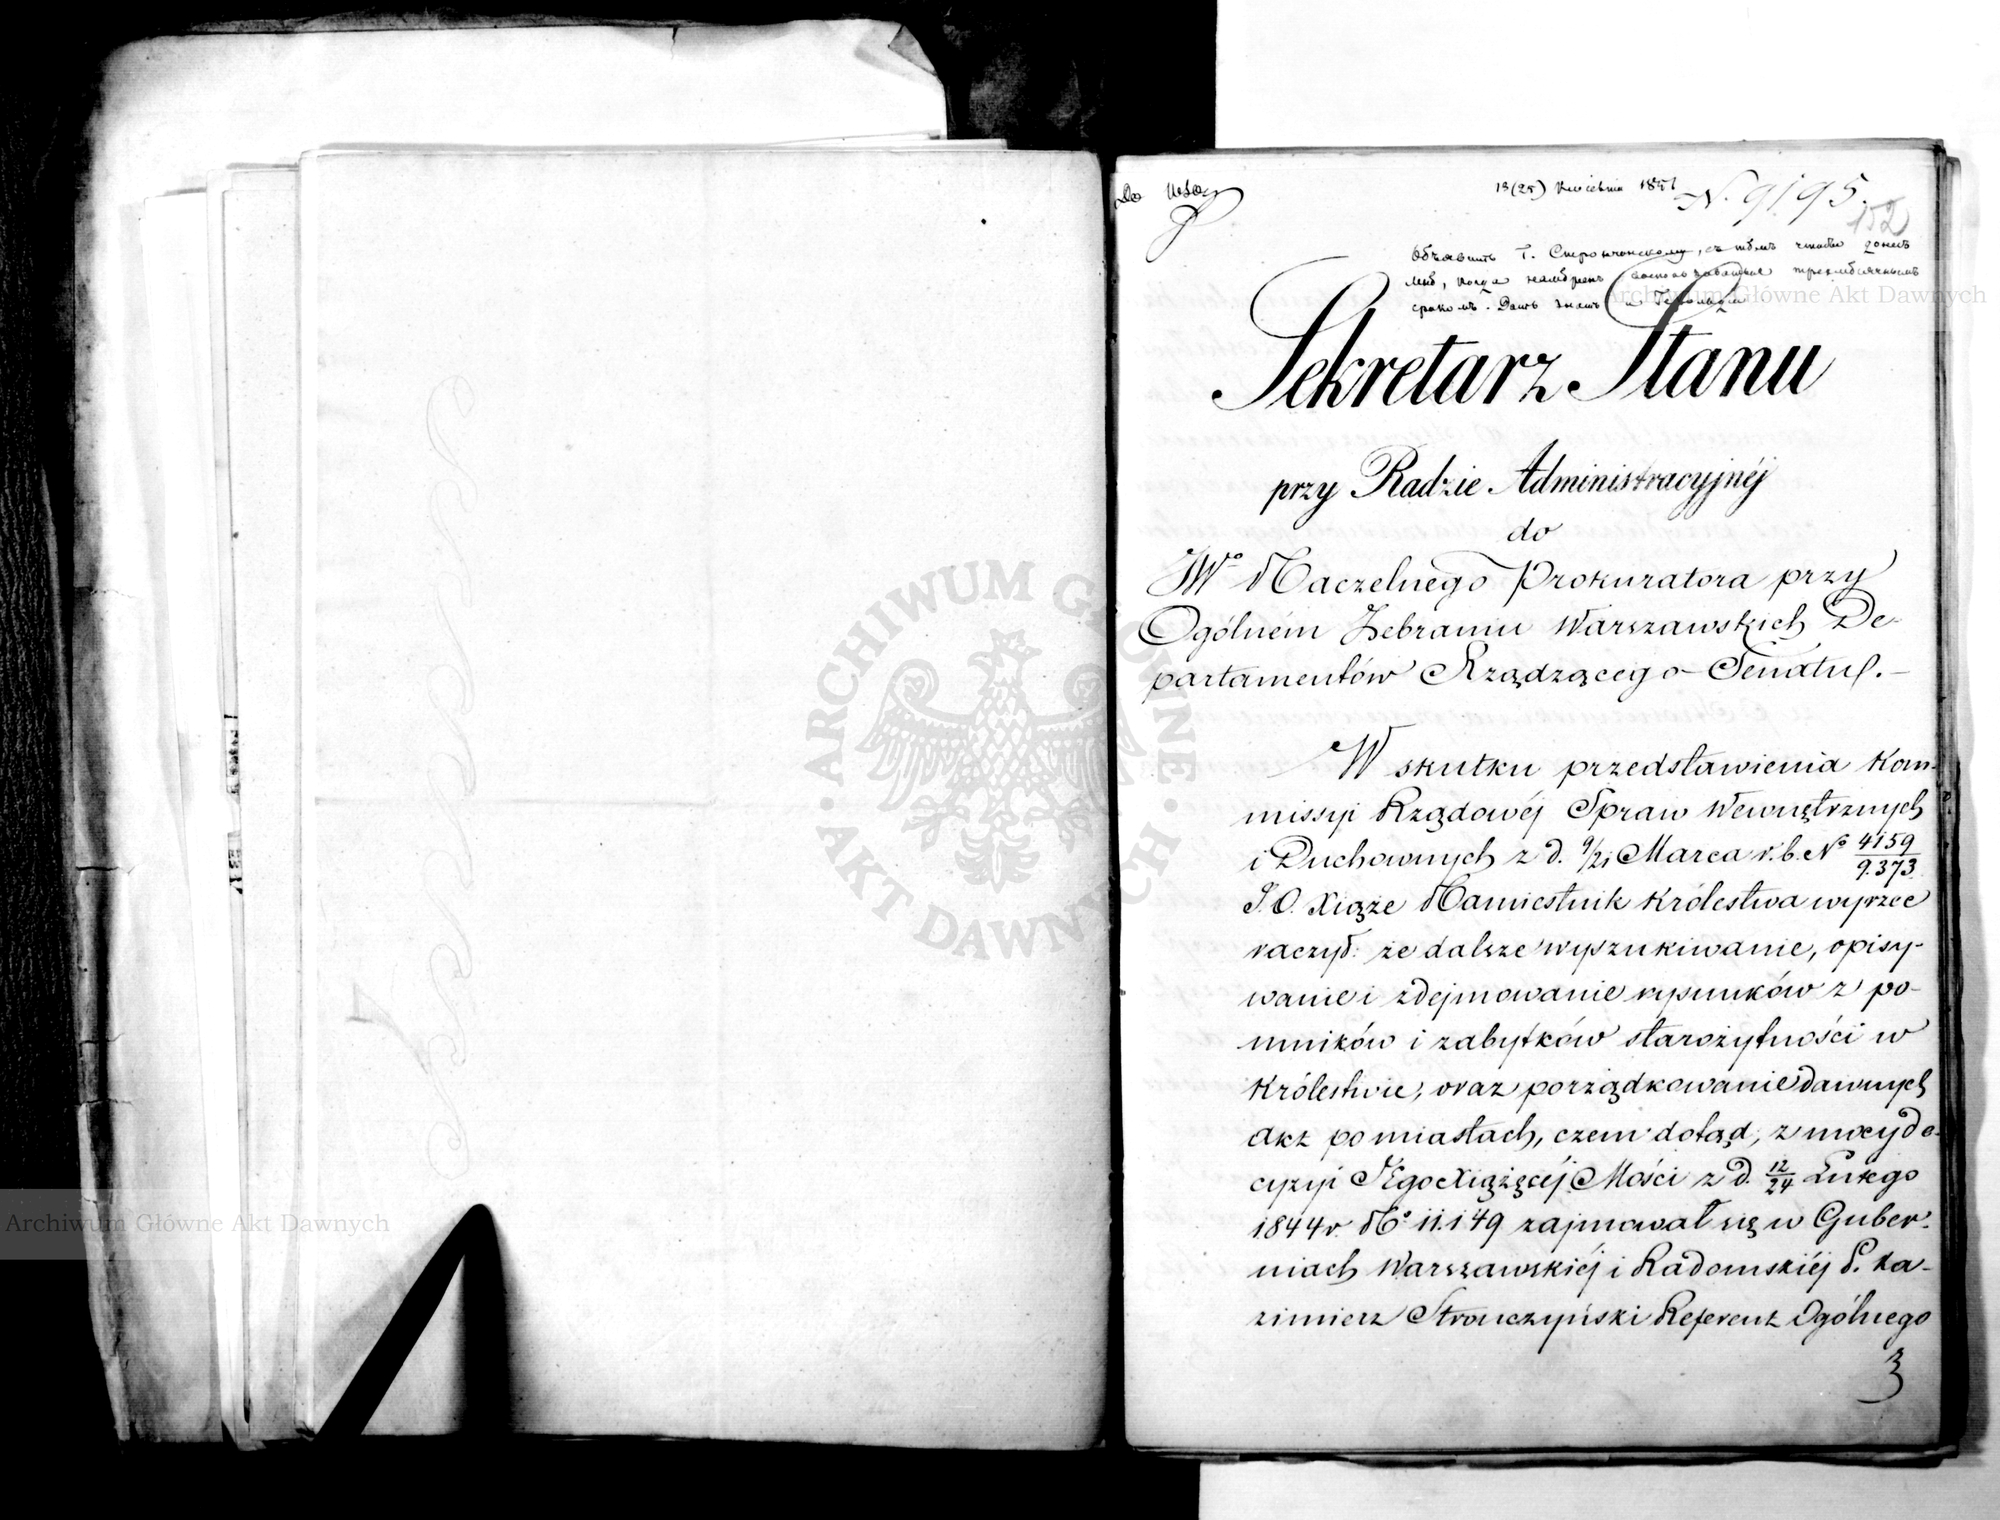 13 (25) Kwietnia 1851
N. 9195.
152
Объявить Г. Строньчинскому, съ тѣмъ чтобы донесъ
мнѣ, когда намѣренъ воспользоваться трехмѣсячнымъ
срокомъ. Дать знать и Герольдіи
Sekretarz Stanu
przy Radzie Administracyjnéj
do
JWo Naczelnego Prokuratora przy
Ogólném Zebraniu Warszawskich De-
partamentów Rządzącego Senatu. —
W skutku przedstawienia Kom-
missyi Rządowéj Spraw Wewnętrznych
i Duchownych z d. 9/21 Marca r. b. No 4159/9.373
J. O. Xiąże Namiestnik Królestwa wyrzec
raczył: że dalsze wyszukiwanie, opisy-
wanie i zdejmowanie rysunków z po-
mników i zabytków starożytności w
Królestwie, oraz porządkowanie dawnych
akt po miastach, czem dotąd, z mocy de-
cyzyi JEgo Xiążęcéj Mości z d. 12/24 Lutego
1844 r. No 11.149 zajmował się w Guber-
niach Warszawskiéj i Radomskiéj P. Ka-
zimierz Stronczyński Referent Ogólnego
3
ARCHIWUM GŁÓWNE · AKT DAWNYCH ·
Archiwum Główne Akt Dawnych
Archiwum Główne Akt Dawnych